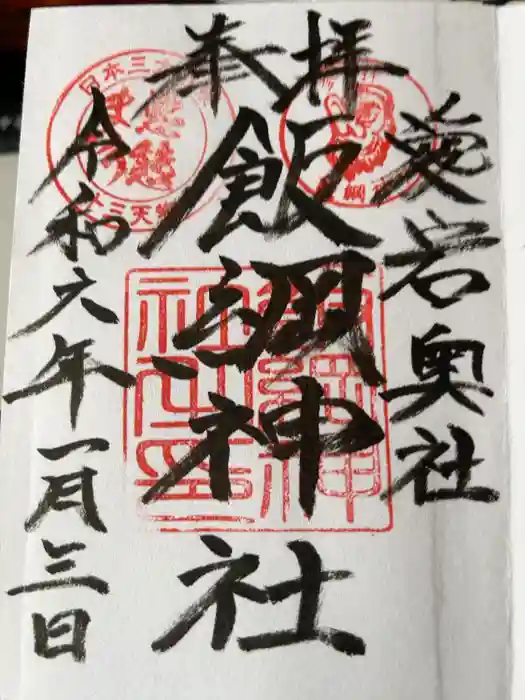 愛宕奥社
奉拝
飯綱神社
令和六年一月三日
飯綱神
社之印
十三天狗